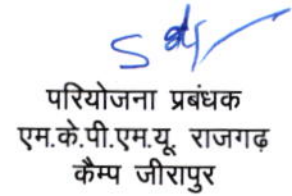 परियोजना प्रबंधक
एम.के.पी.एम.यू. राजगढ़
कैम्प जीरापुर